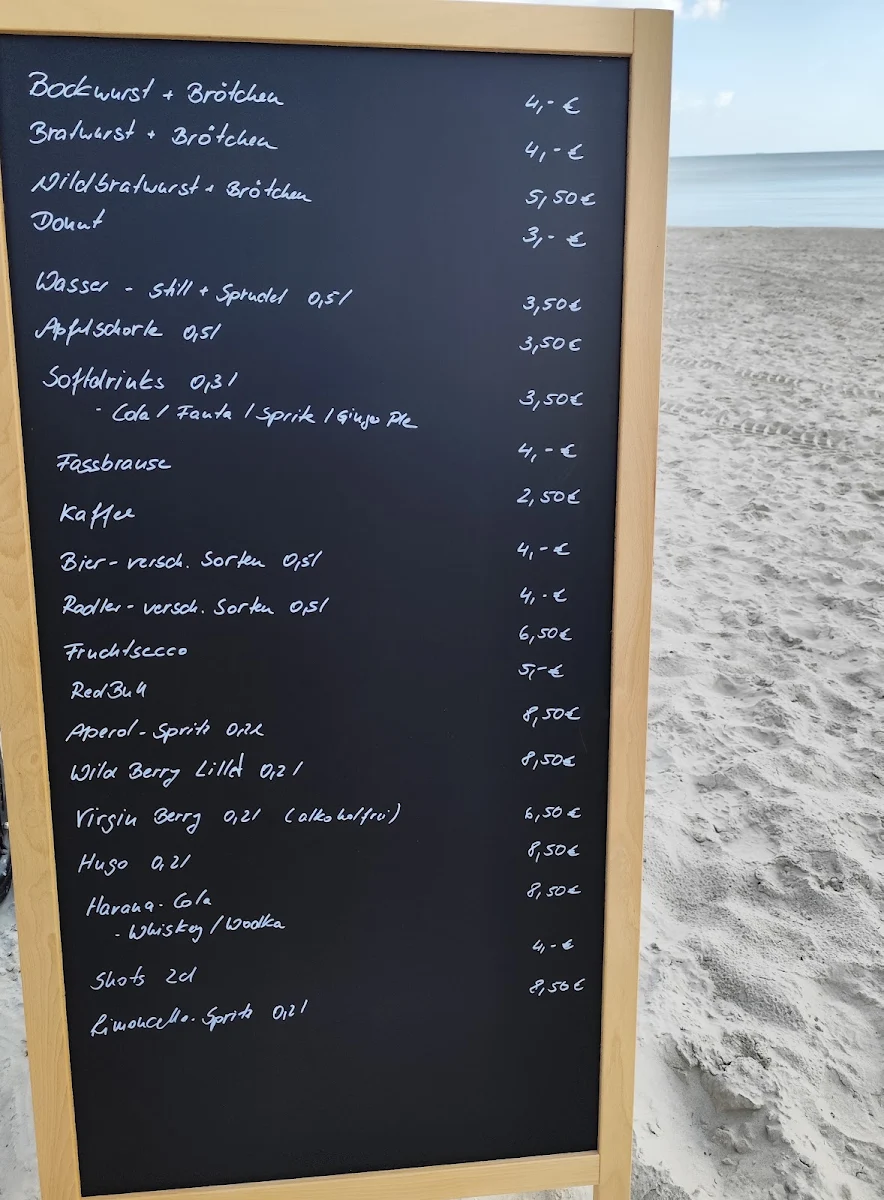 Bockwurst + Brötchen 4,- €
Bratwurst + Brötchen 4,- €
Wildbratwurst + Brötchen 5,50€
Donut 3,- €
Wasser - still + Sprudel 0,5l 3,50€
Apfelschorle 0,5l 3,50€
Softdrinks 0,3l 3,50€
- Cola / Fanta / Sprite / Ginger Ale
Fassbrause 4,- €
Kaffee 2,50€
Bier - versch. Sorten 0,5l 4,- €
Radler - versch. Sorten 0,5l 4,- €
Fruchtsecco 6,50€
RedBull 5,- €
Aperol-Spritz 0,2l 8,50€
Wild Berry Lillet 0,2l 8,50€
Virgin Berry 0,2l (alkoholfrei) 6,50€
Hugo 0,2l 8,50€
Havana-Cola 8,50€
- Whiskey / Wodka
Shots 2cl 4,- €
Limoncello-Spritz 0,2l 8,50€